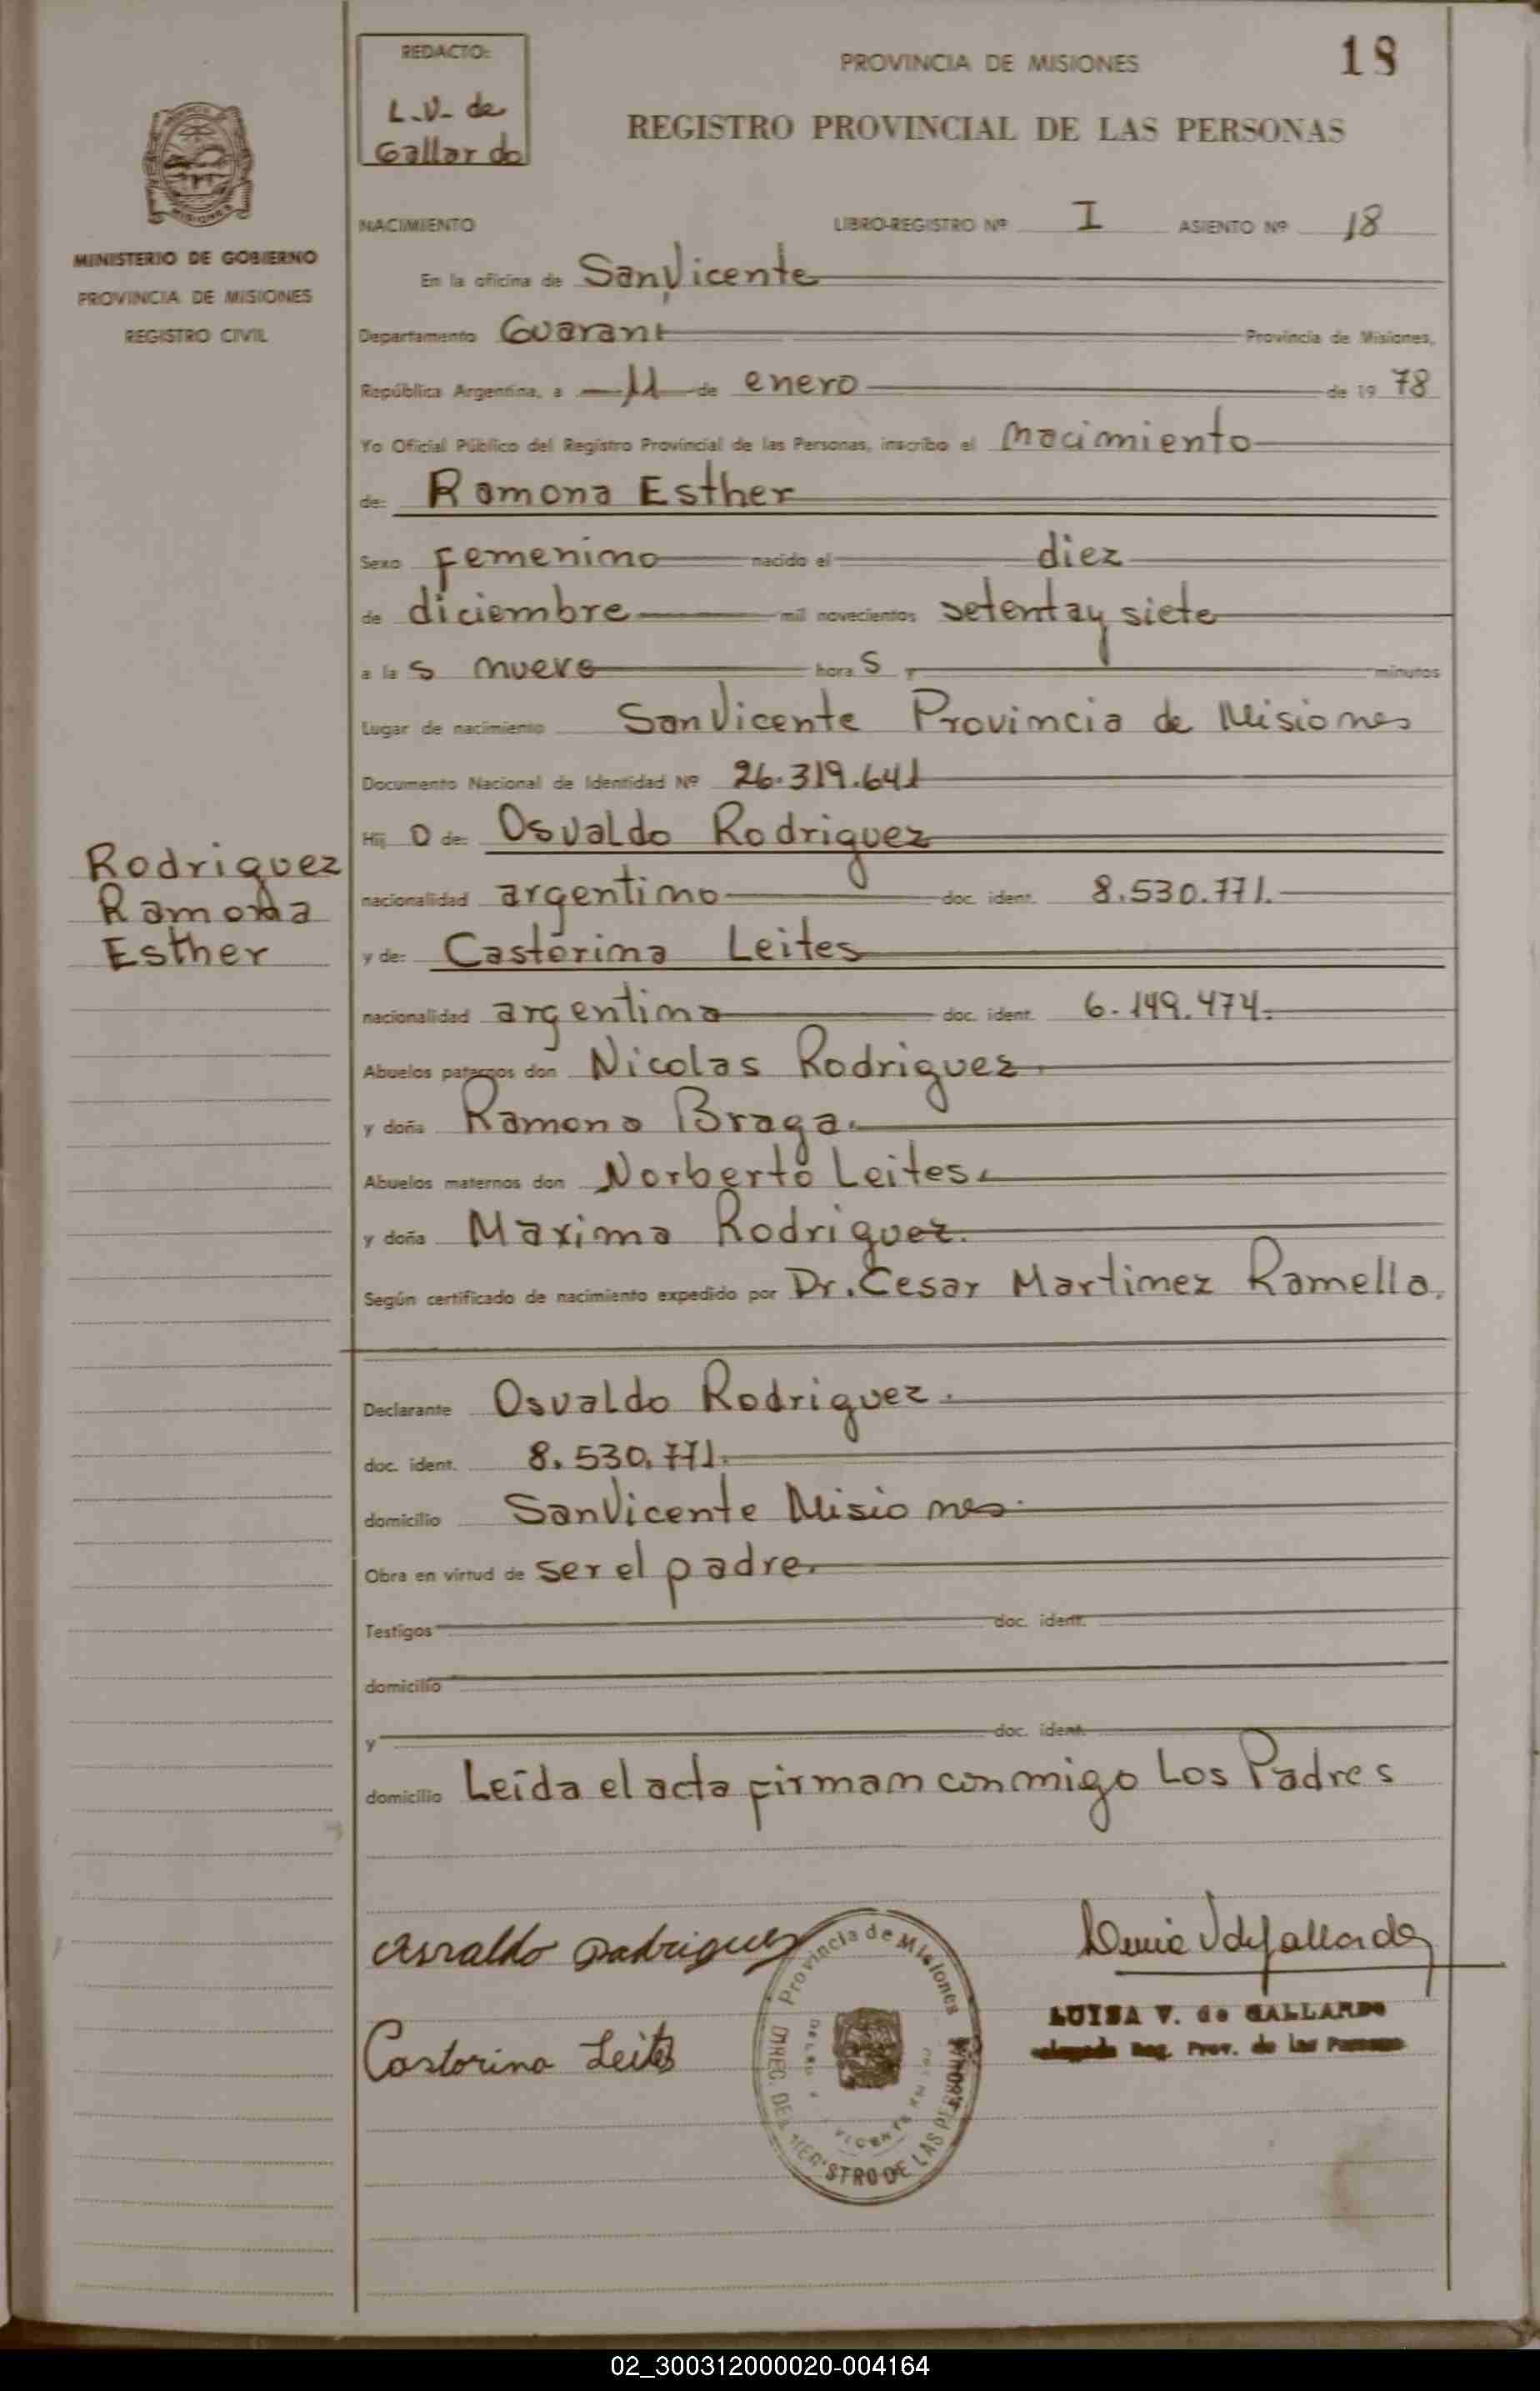 REDACTO:
L.V. de
Gallardo
PROVINCIA DE MISIONES
18
REGISTRO PROVINCIAL DE LAS PERSONAS
MISIONES
MINISTERIO DE GOBIERNO
PROVINCIA DE MISIONES
REGISTRO CIVIL
NACIMIENTO LIBRO-REGISTRO Nº I ASIENTO Nº 18
En la oficina de San Vicente
Departamento Guarani Provincia de Misiones,
República Argentina, a 11 de enero de 19 78
Yo Oficial Público del Registro Provincial de las Personas, inscribo el nacimiento
de: Ramona Esther
Sexo femenino nacido el diez
de diciembre mil novecientos setenta y siete
a la s nueve hora s y minutos
Lugar de nacimiento San Vicente Provincia de Misiones
Documento Nacional de Identidad Nº 26.319.641
Hij o de: Osvaldo Rodriguez
Rodriguez
Ramona
Esther
nacionalidad argentino doc. ident. 8.530.771.
y de: Castorina Leites
nacionalidad argentina doc. ident. 6.149.474.
Abuelos paternos don Nicolas Rodriguez
y doña Ramona Braga.
Abuelos maternos don Norberto Leites.
y doña Maxima Rodriguez.
Según certificado de nacimiento expedido por Dr. Cesar Martinez Ramella.
Declarante Osvaldo Rodriguez.
doc. ident. 8.530.771.
domicilio San Vicente Misiones.
Obra en virtud de ser el padre.
Testigos doc. ident.
domicilio
y doc. ident.
domicilio Leída el acta firman conmigo Los Padres
Osvaldo Rodriguez
Castorina Leites
Provincia de Misiones
DIREC. DEL REGISTRO DE LAS PERSONAS
LUISA V. de GALLARDO
Reg. Prov. de las Personas
02_300312000020-004164